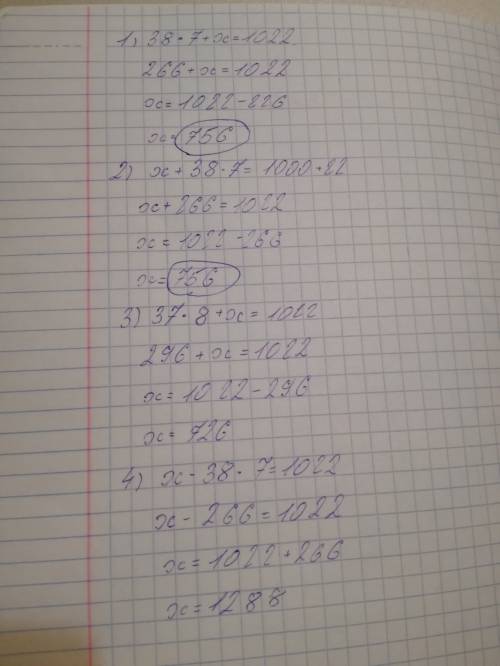 1) 38·7+x=1022
266+x=1022
x=1022-226
x=756
2) x+38·7=1000+22
x+266=1022
x=1022-266
x=756
3) 37·8+x=1022
296+x=1022
x=1022-296
x=726
4) x-38·7=1022
x-266=1022
x=1022+266
x=1288